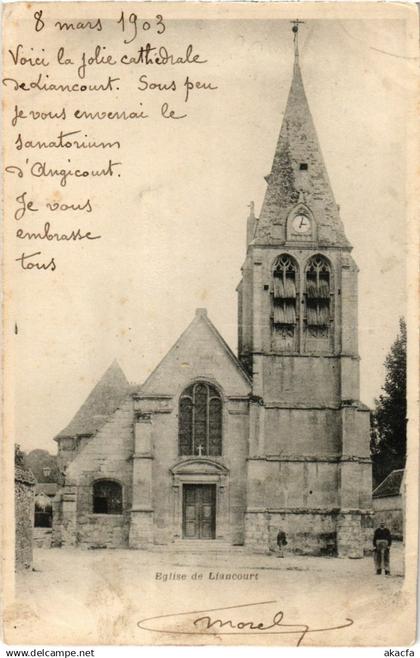 8 mars 1903
Voici la jolie cathédrale
de Liancourt. Sous peu
je vous enverrai le
sanatorium
d'Angicourt.
Je vous
embrasse
tous
Eglise de Liancourt
Morel
www.delcampe.net
akacfa